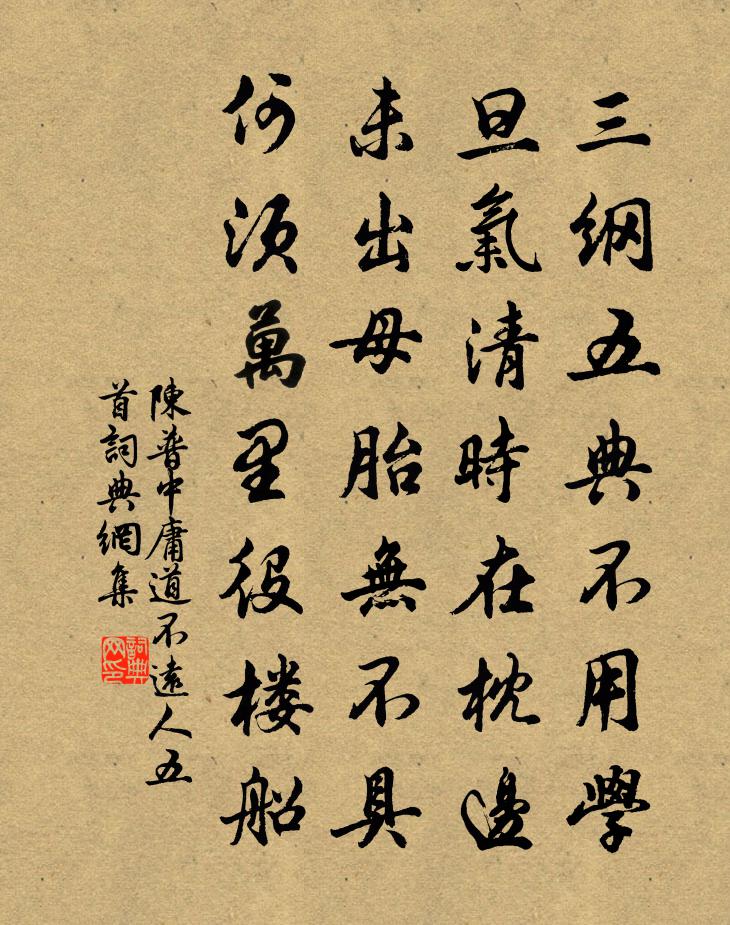 三綱五典不用學
旦氣清時在枕邊
未出母胎無不具
何須萬里役楼船
陳普中庸道不遠人五
首詞典網集
詞典网印